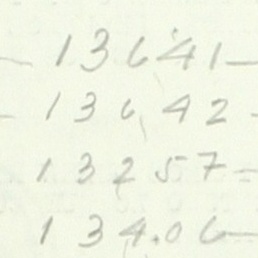 13641-
13642-
13257-
134.06-